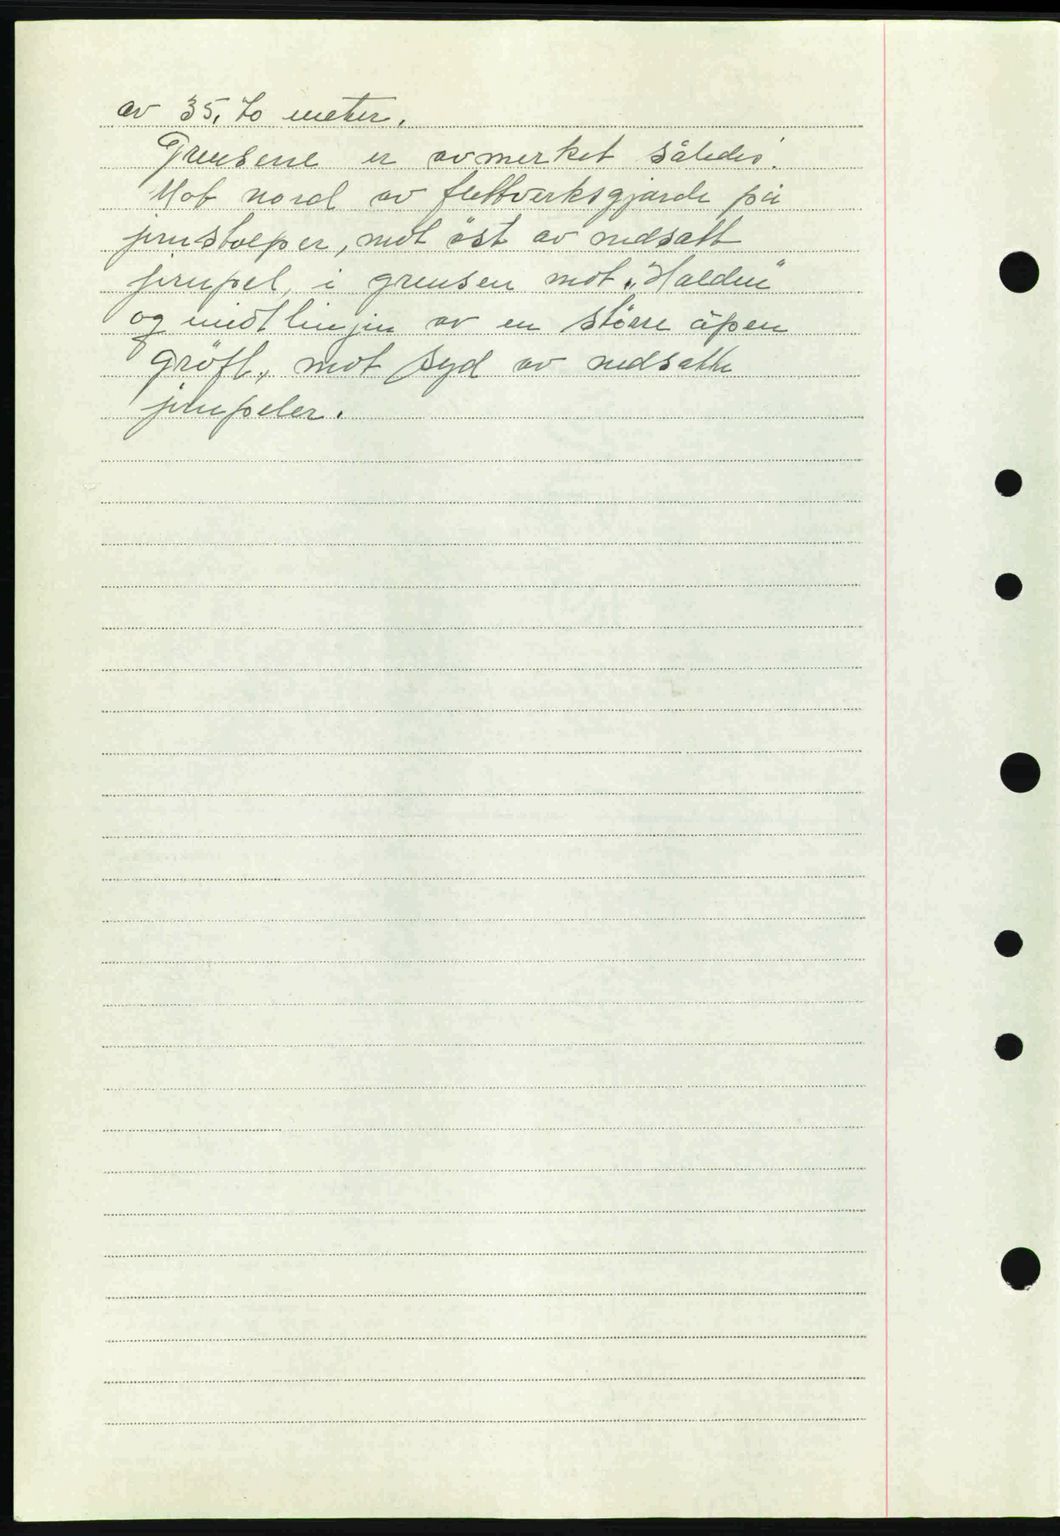 av 35,70 meter.
Grensene er avmerket således:
Mot nord av flettverksgjærde på
jernstolper, mot øst av nedsatt
jernpel, i grensen mot „Halden"
og midtlinjen av en større åpen
grøft, mot syd av nedsatte
jernpeler.